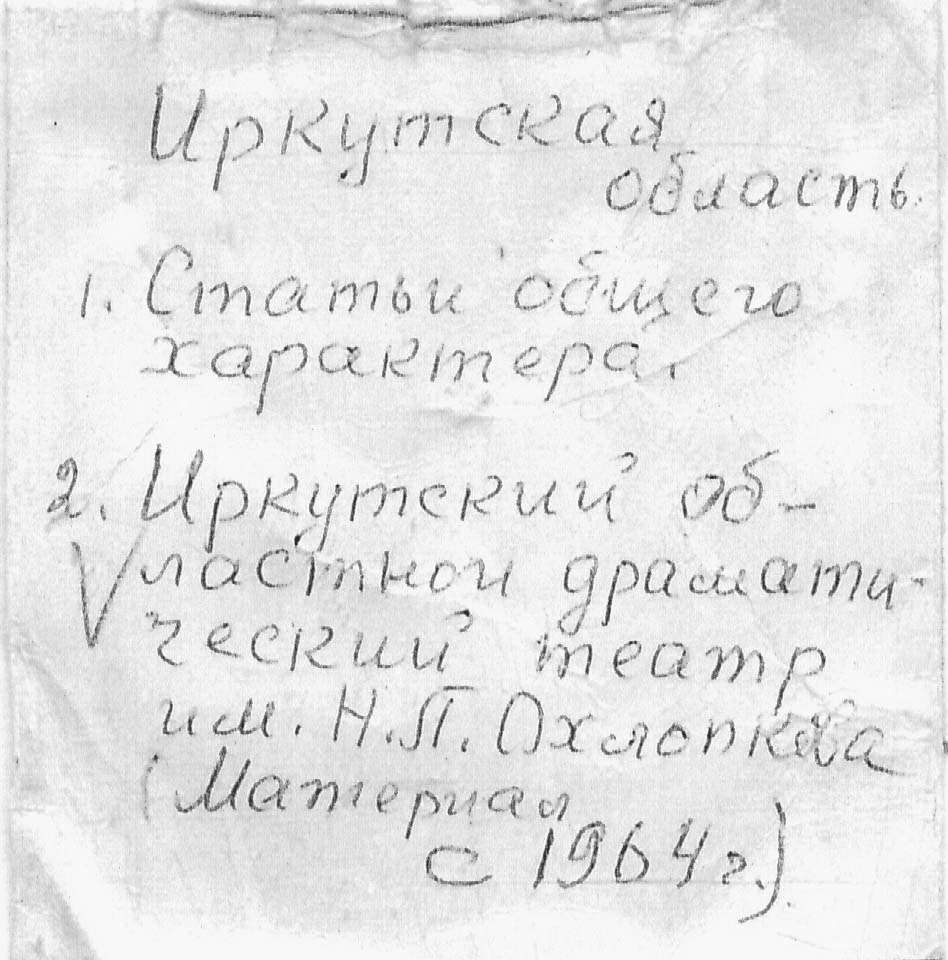 Иркутская
область.
1. Статьи общего
характера.
2. Иркутский об-
ластной драмати-
ческий театр
им. Н.П. Охлопкова
(Материал
с 1964 г.)